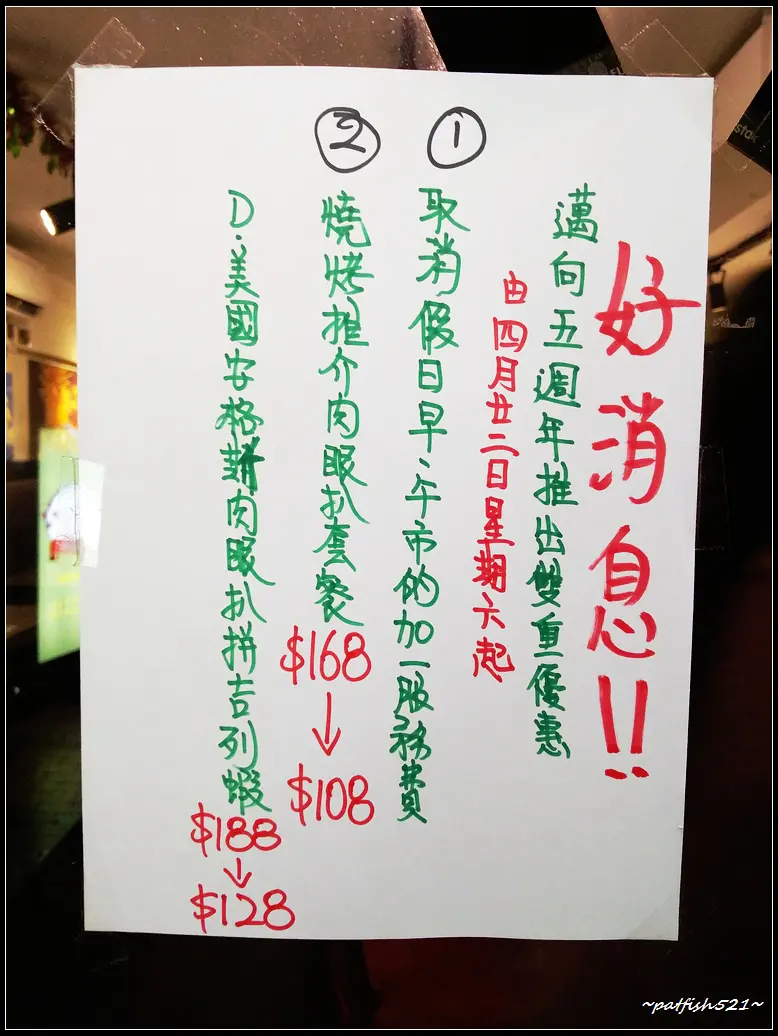 好消息!!
邁向五週年推出雙重優惠
由四月廿二日星期六起
①
取消假日早、午市的加一服務費
②
燒烤推介肉眼扒套餐
$168
↓
$108
D.美國安格斯肉眼扒拼吉列蝦
$188
↓
$128
~patfish521~